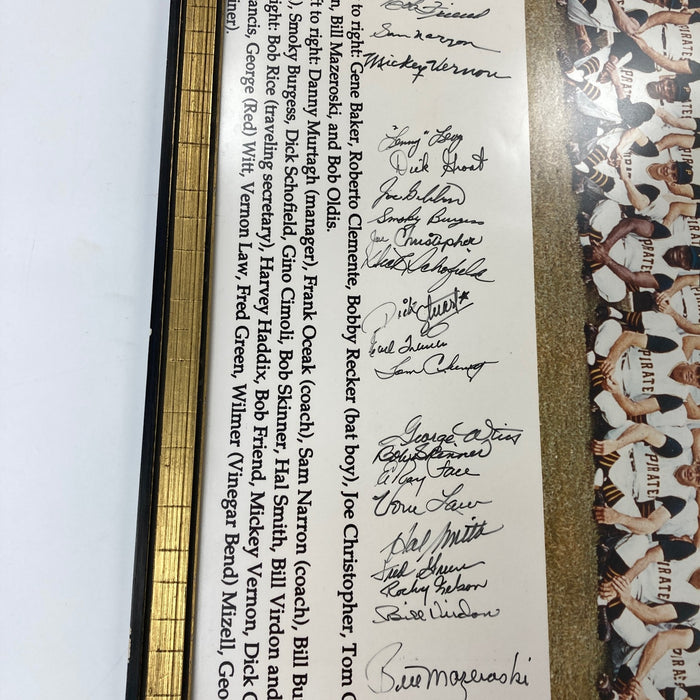 Bob Friend
Sam Narron
Mickey Vernon
"Lenny" Levy
Dick Groat
Joe Gibbon
Smoky Burgess
Joe Christopher
Dick Schofield
Dick Stuart
Earl Francis
Tom Cheney
George Witt
Bob Skinner
ElRoy Face
Vern Law
Hal Smith
Fred Green
Rocky Nelson
Bill Virdon
Bill Mazeroski
to right: Gene Baker, Roberto Clemente, Bobby Recker (bat boy), Joe Christopher, Tom C
n, Bill Mazeroski, and Bob Oldis.
ft to right: Danny Murtagh (manager), Frank Oceak (coach), Sam Narron (coach), Bill Bu
), Smoky Burgess, Dick Schofield, Gino Cimoli, Bob Skinner, Hal Smith, Bill Virdon and
right: Bob Rice (traveling secretary), Harvey Haddix, Bob Friend, Mickey Vernon, Dick G
ancis, George (Red) Witt, Vernon Law, Fred Green, Wilmer (Vinegar Bend) Mizell, Geo
iner).
PIRATES
PIRATES
PIRATES
PIRATE
PIRATE
PIRATE
PIRATE
PIRATE